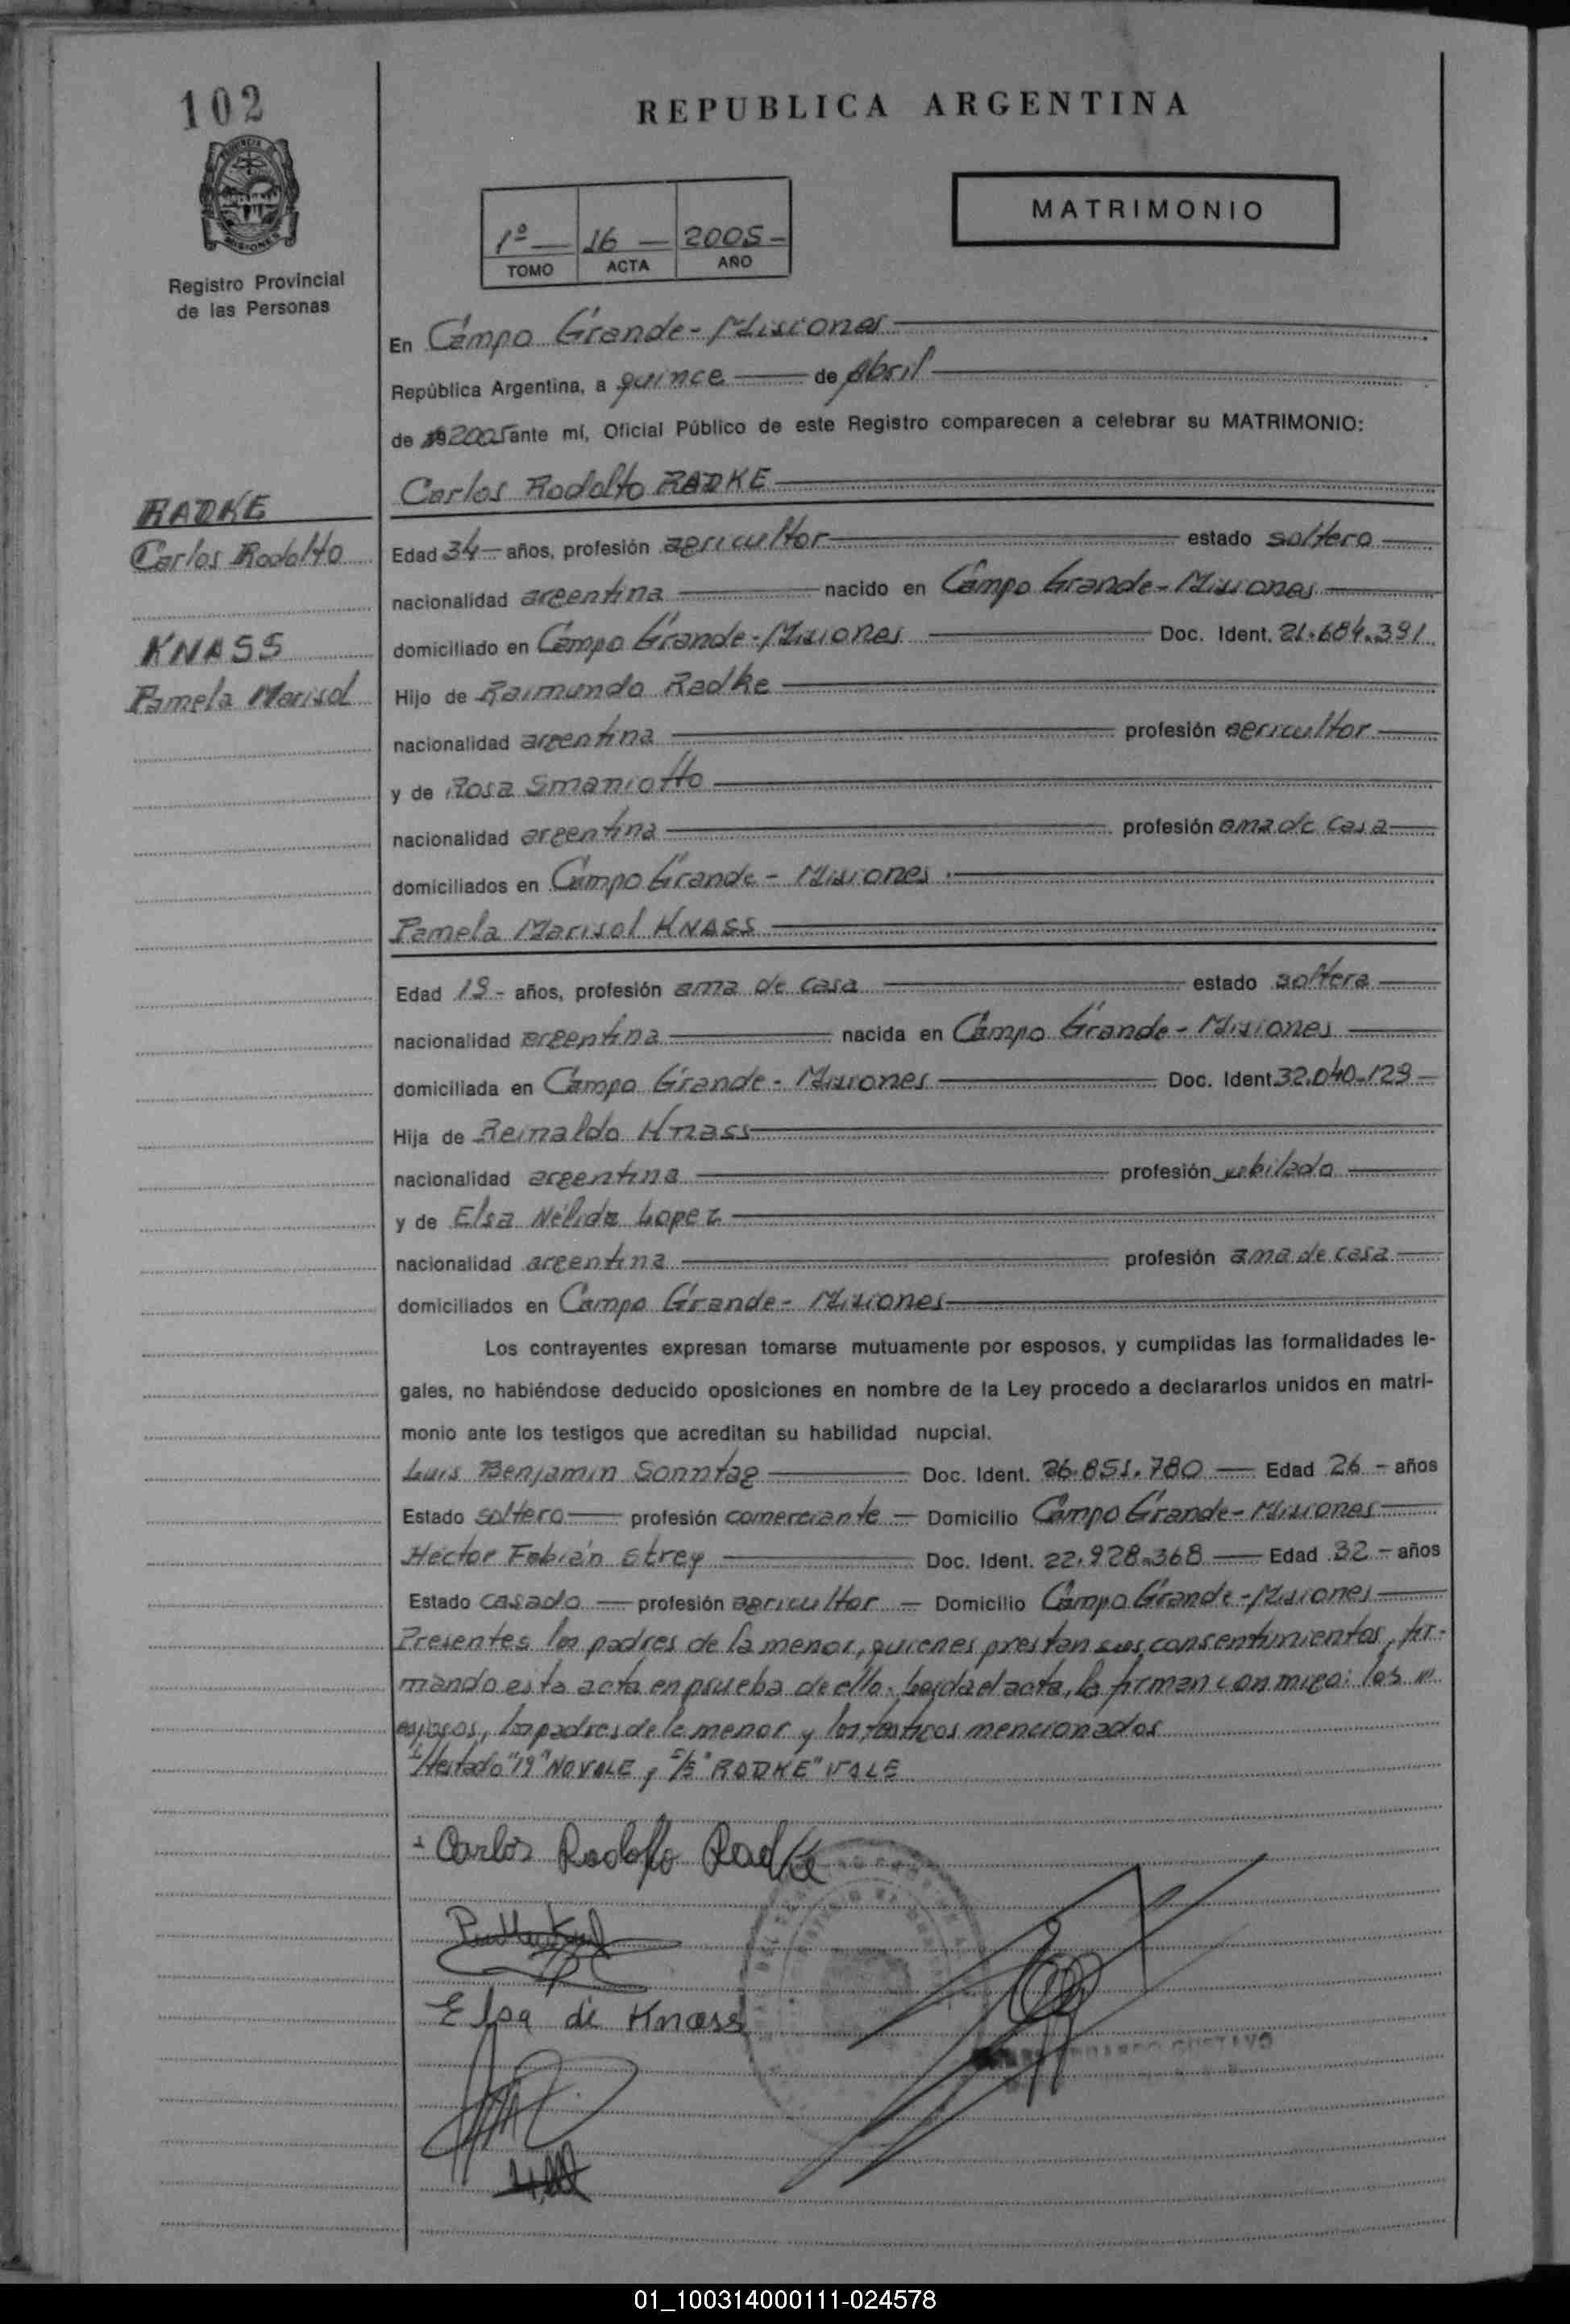 102
REPUBLICA ARGENTINA
MATRIMONIO
1º — 16 — 2005 -
TOMO ACTA AÑO
Registro Provincial
de las Personas
En Campo Grande - Misiones
República Argentina, a quince de Abril
de 19 2005 ante mí, Oficial Público de este Registro comparecen a celebrar su MATRIMONIO:
RADKE
Carlos Rodolfo
KNASS
Pamela Marisol
Carlos Rodolfo RADKE
Edad 34 años, profesión agricultor estado soltero
nacionalidad argentina nacido en Campo Grande - Misiones
domiciliado en Campo Grande - Misiones Doc. Ident. 21.684.391
Hijo de Raimundo Radke
nacionalidad argentina profesión agricultor
y de Rosa Smaniotto
nacionalidad argentina profesión ama de casa
domiciliados en Campo Grande - Misiones
Pamela Marisol KNASS
Edad 19 - años, profesión ama de casa estado soltera
nacionalidad argentina nacida en Campo Grande - Misiones
domiciliada en Campo Grande - Misiones Doc. Ident. 32.040.129
Hija de Reinaldo Knass
nacionalidad argentina profesión jubilado
y de Elsa Nélida Lopez
nacionalidad argentina profesión ama de casa
domiciliados en Campo Grande - Misiones
Los contrayentes expresan tomarse mutuamente por esposos, y cumplidas las formalidades le-
gales, no habiéndose deducido oposiciones en nombre de la Ley procedo a declararlos unidos en matri-
monio ante los testigos que acreditan su habilidad nupcial.
Luis Benjamin Sonntag Doc. Ident. 26.851.780 Edad 26 - años
Estado soltero profesión comerciante Domicilio Campo Grande - Misiones
Héctor Fabián Strey Doc. Ident. 22.928.368 Edad 32 - años
Estado casado profesión agricultor Domicilio Campo Grande - Misiones
Presentes los padres de la menor, quienes prestan sus consentimientos, fir-
mando esta acta en prueba de ello. Leída el acta, la firman conmigo: los
esposos, los padres de la menor y los testigos mencionados
Testado "19" NO VALE, S/B "RADKE" VALE
Carlos Rodolfo Radke
Elsa de Knass
GUSTAVO
01_100314000111-024578